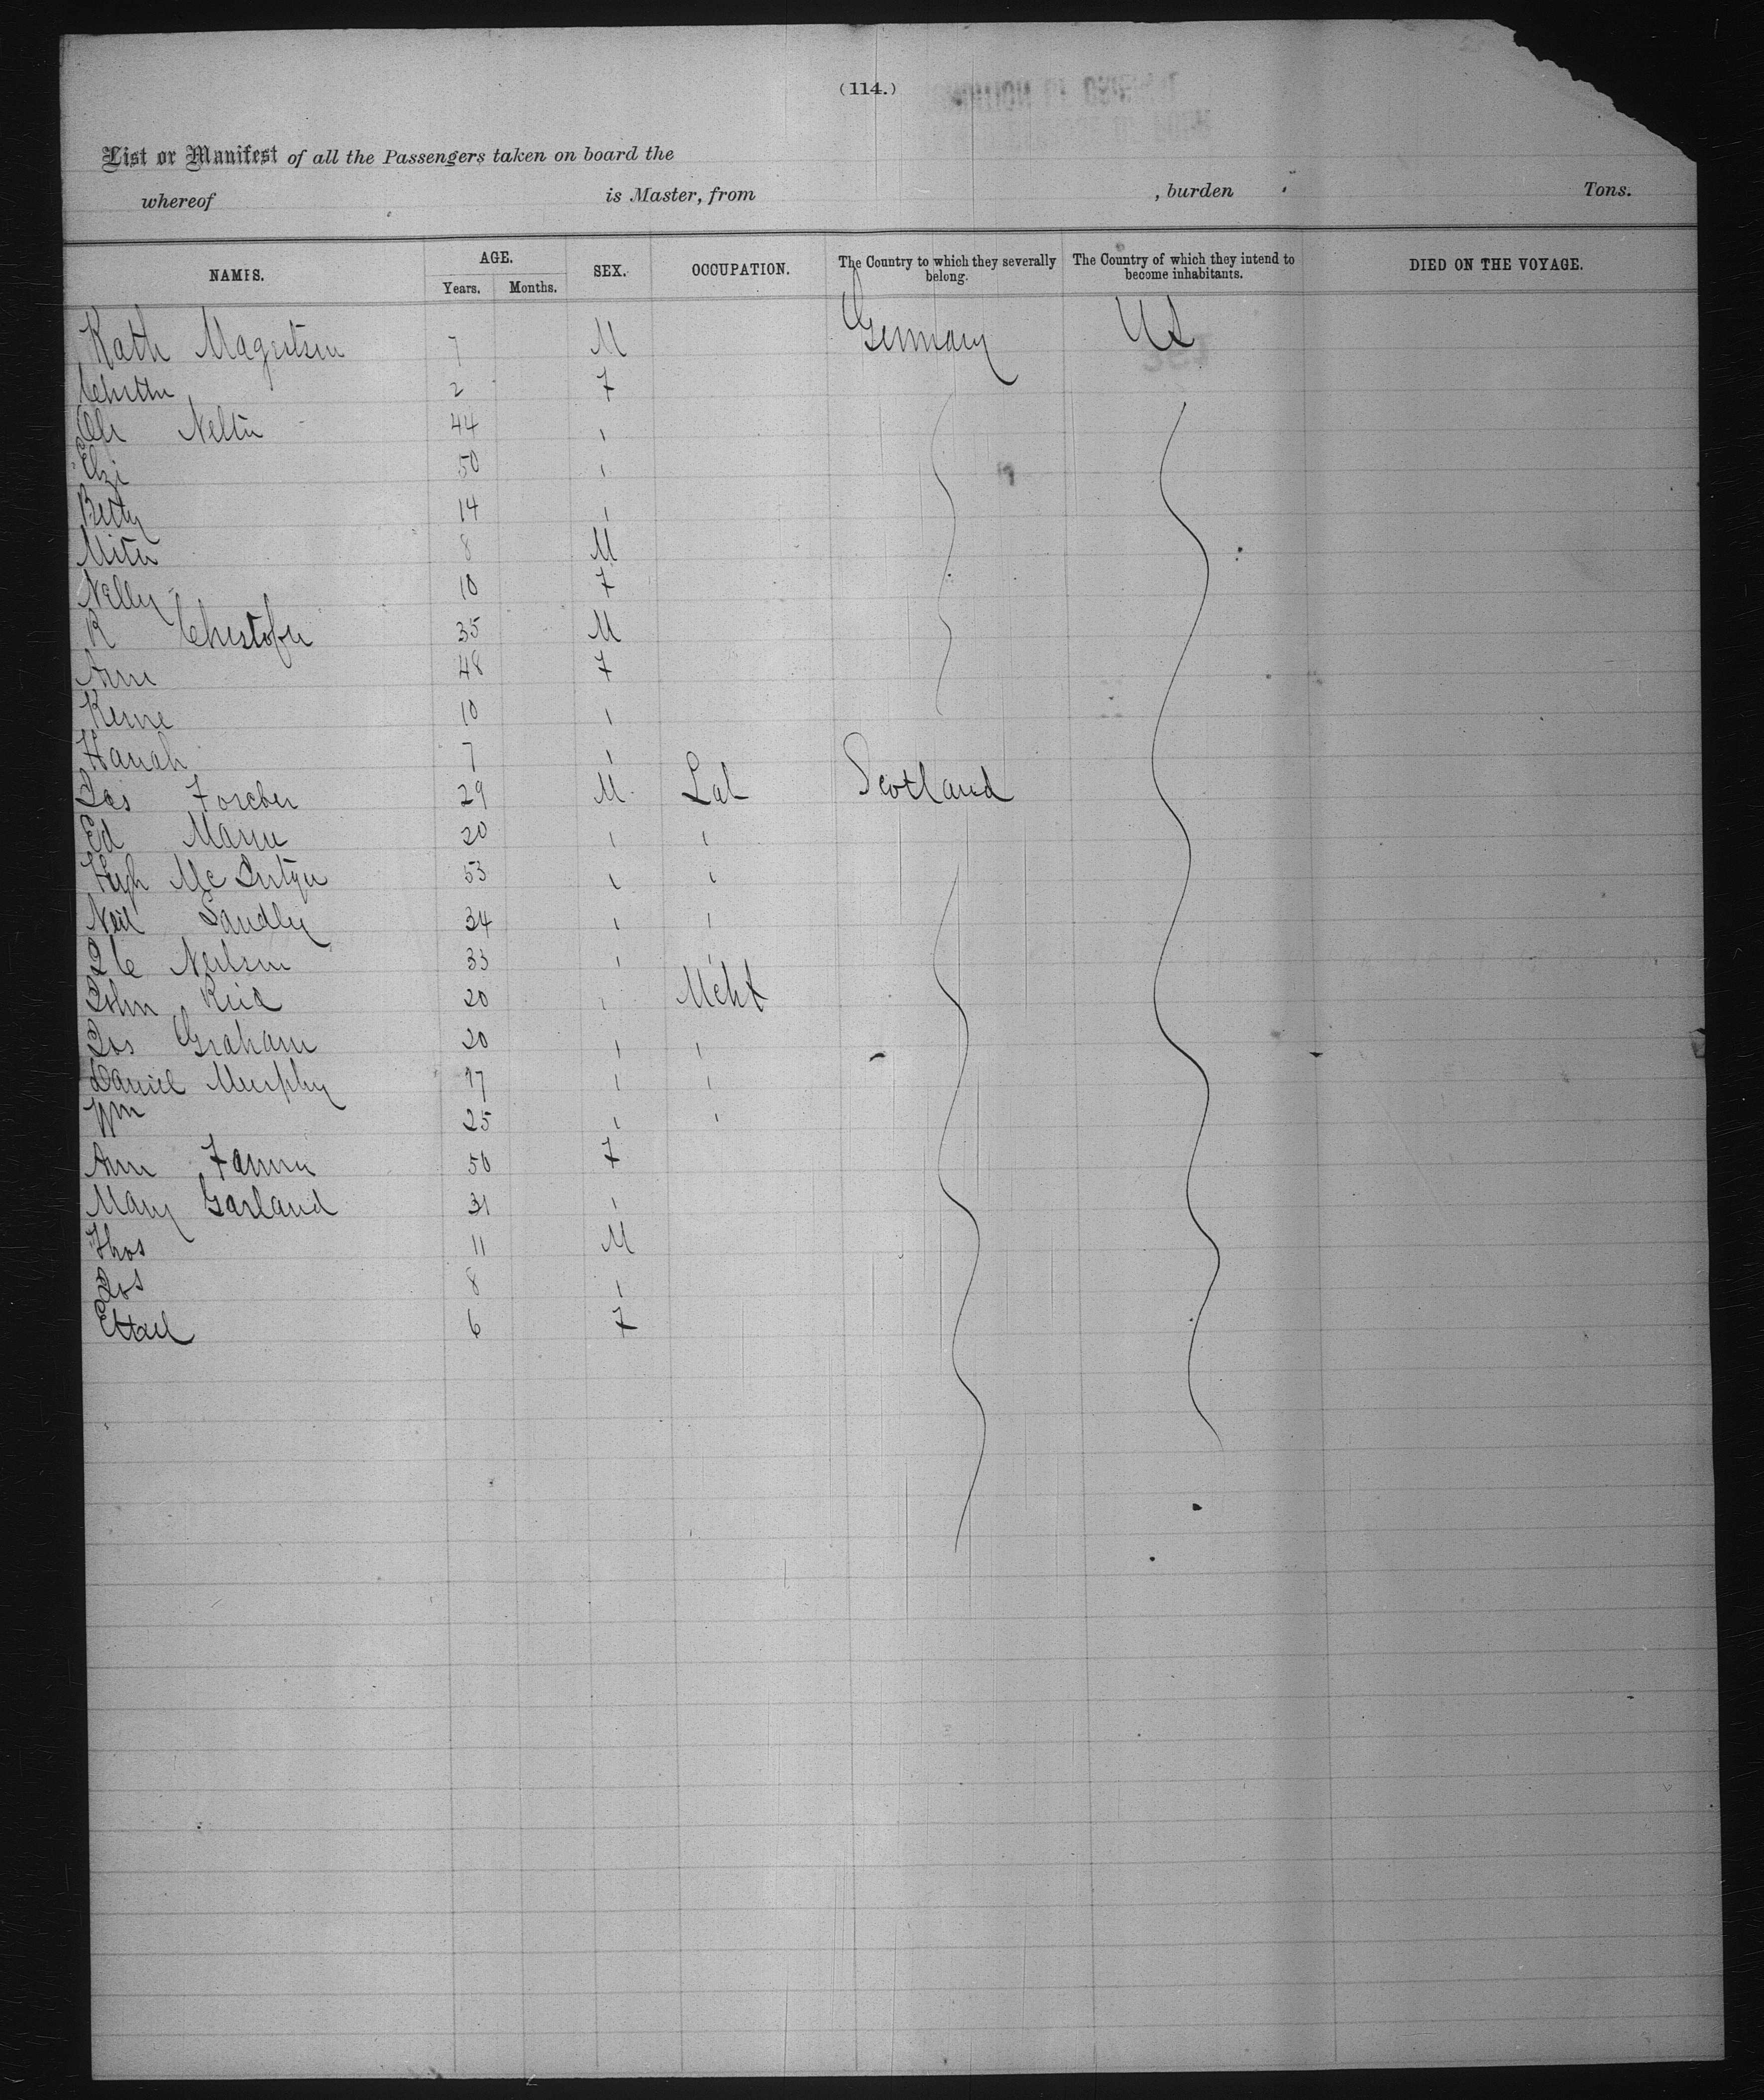 (114.)
List or Manifest of all the Passengers taken on board the
whereof is Master, from , burden Tons.
NAMES. AGE. Years. Months. SEX. OCCUPATION. The Country to which they severally belong. The Country of which they intend to become inhabitants. DIED ON THE VOYAGE.
Kath Magertsen 7 M Germany US
2 F
44 "
50 "
Betty 14 "
8 M
Nelly 10 F
R Christofer 35 M
Anne 48 F
10 "
Hanah 7 "
Jas 29 M Lab Scotland
Ed Mann 20 " "
Hugh McIntyre 53 " "
Neil Sandley 34 " "
J C Neilsen 33 " "
John Reid 20 " Mcht
Jas Graham 20 " "
Daniel Murphy 17 " "
Wm 25 " "
Ann 50 F
Mary Garland 31 "
Thos 11 M
Jas 8 "
6 F